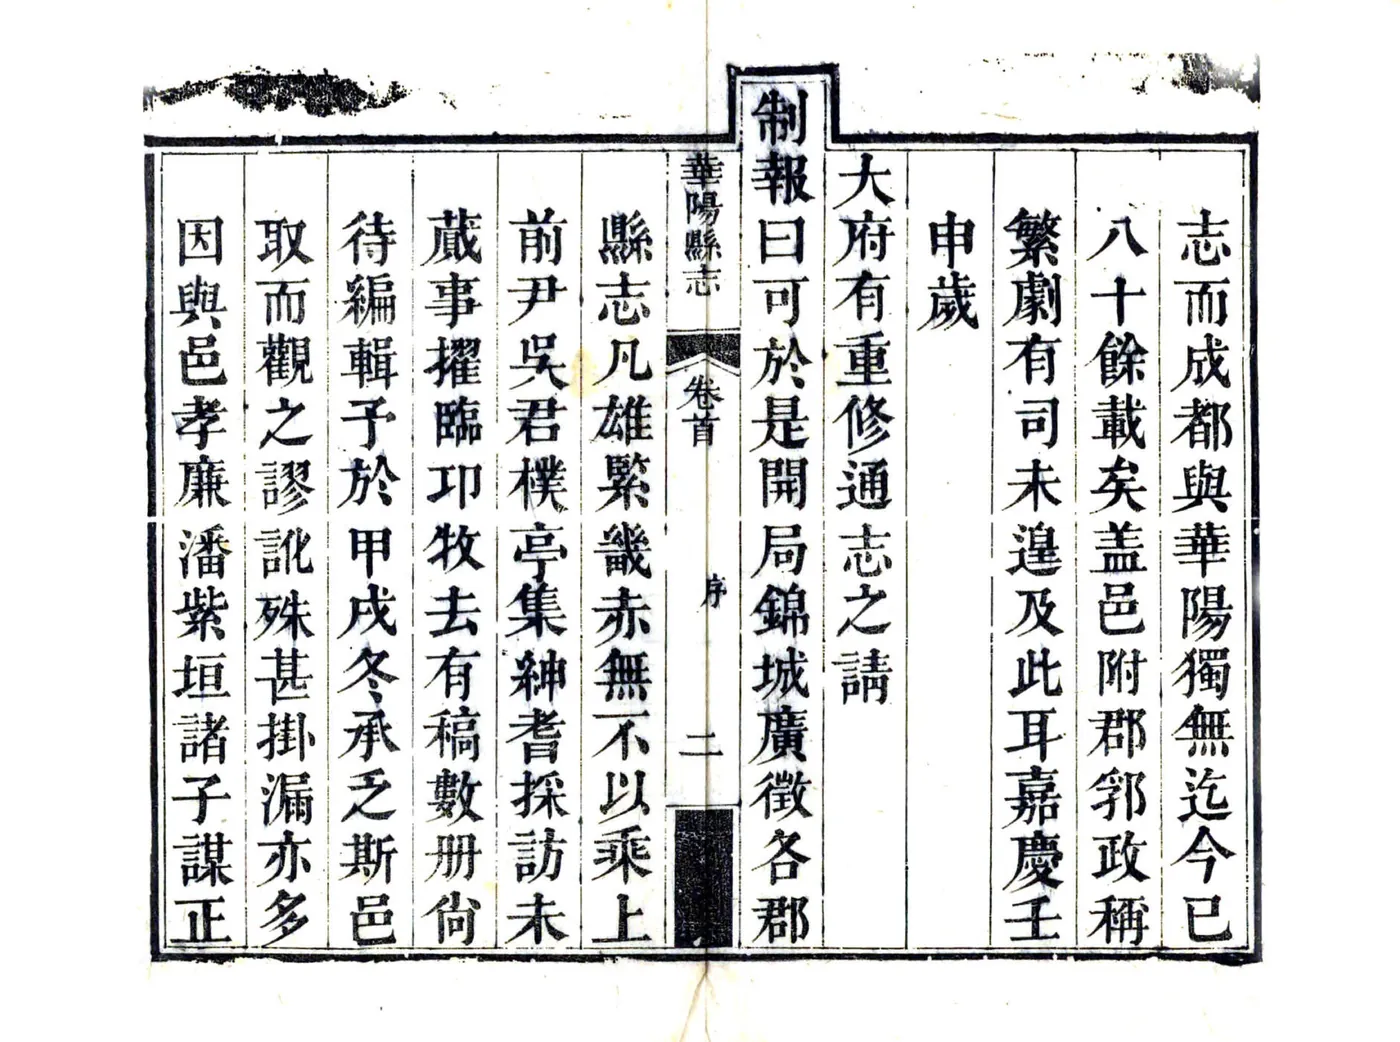 志而成都與華陽獨無迄今已
八十餘載矣盖邑附郡郛政稱
繁劇有司未遑及此耳嘉慶壬
申歲
大府有重修通志之請
制報曰可於是開局錦城廣徵各郡
華陽縣志 卷首 序 二
縣志凡雄緊畿赤無不以乘上
前尹吳君樸亭集紳耆採訪未
蕆事擢臨邛牧去有稿數册尙
待編輯予於甲戌冬承乏斯邑
取而觀之謬訛殊甚掛漏亦多
因與邑孝廉潘紫垣諸子謀正